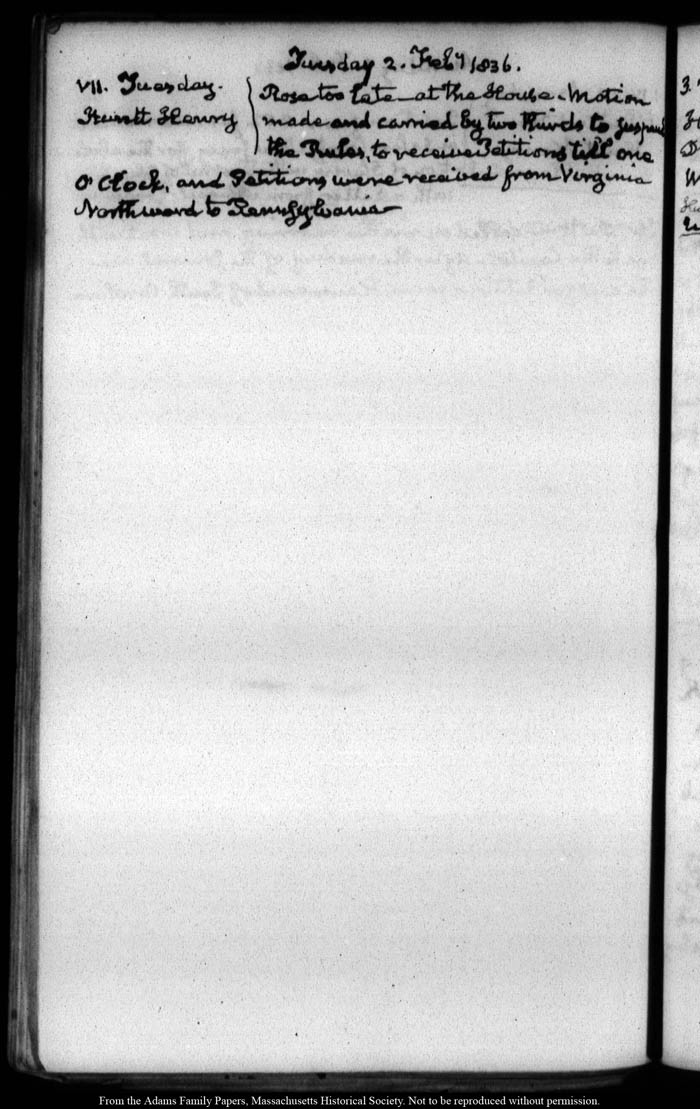 Tuesday 2. Feby. 1836.
VII. Tuesday.
Huntt Henry
Rose too late—at the House. Motion
made and carried by two thirds to suspend
the Rules, to receive Petitions till one
O'Clock, and Petitions were received from Virginia
Northward to Pennsylvania—
From the Adams Family Papers, Massachusetts Historical Society. Not to be reproduced without permission.